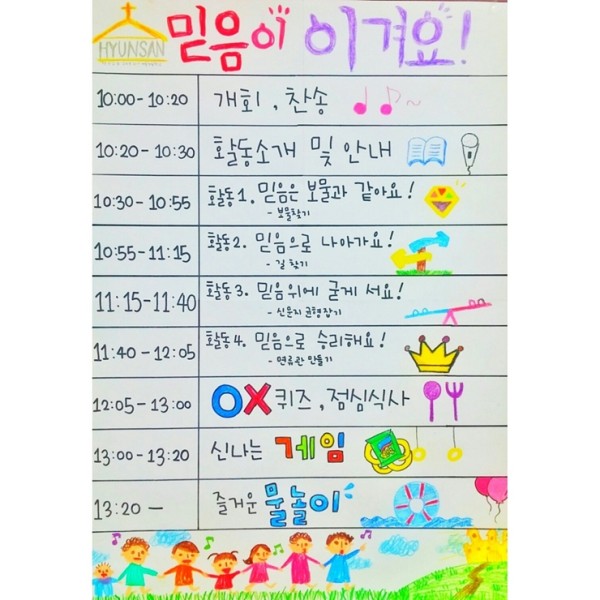 HYUNSAN
믿음이 이겨요!
10:00-10:20 개회, 찬송
10:20-10:30 활동소개 및 안내
10:30-10:55 활동1. 믿음은 보물과 같아요!
- 보물찾기
10:55-11:15 활동2. 믿음으로 나아가요!
- 길 찾기
11:15-11:40 활동3. 믿음위에 굳게 서요!
- 신문지 균형잡기
11:40-12:05 활동4. 믿음으로 승리해요!
- 면류관 만들기
12:05-13:00 OX퀴즈, 점심식사
13:00-13:20 신나는 게임
13:20- 즐거운 물놀이